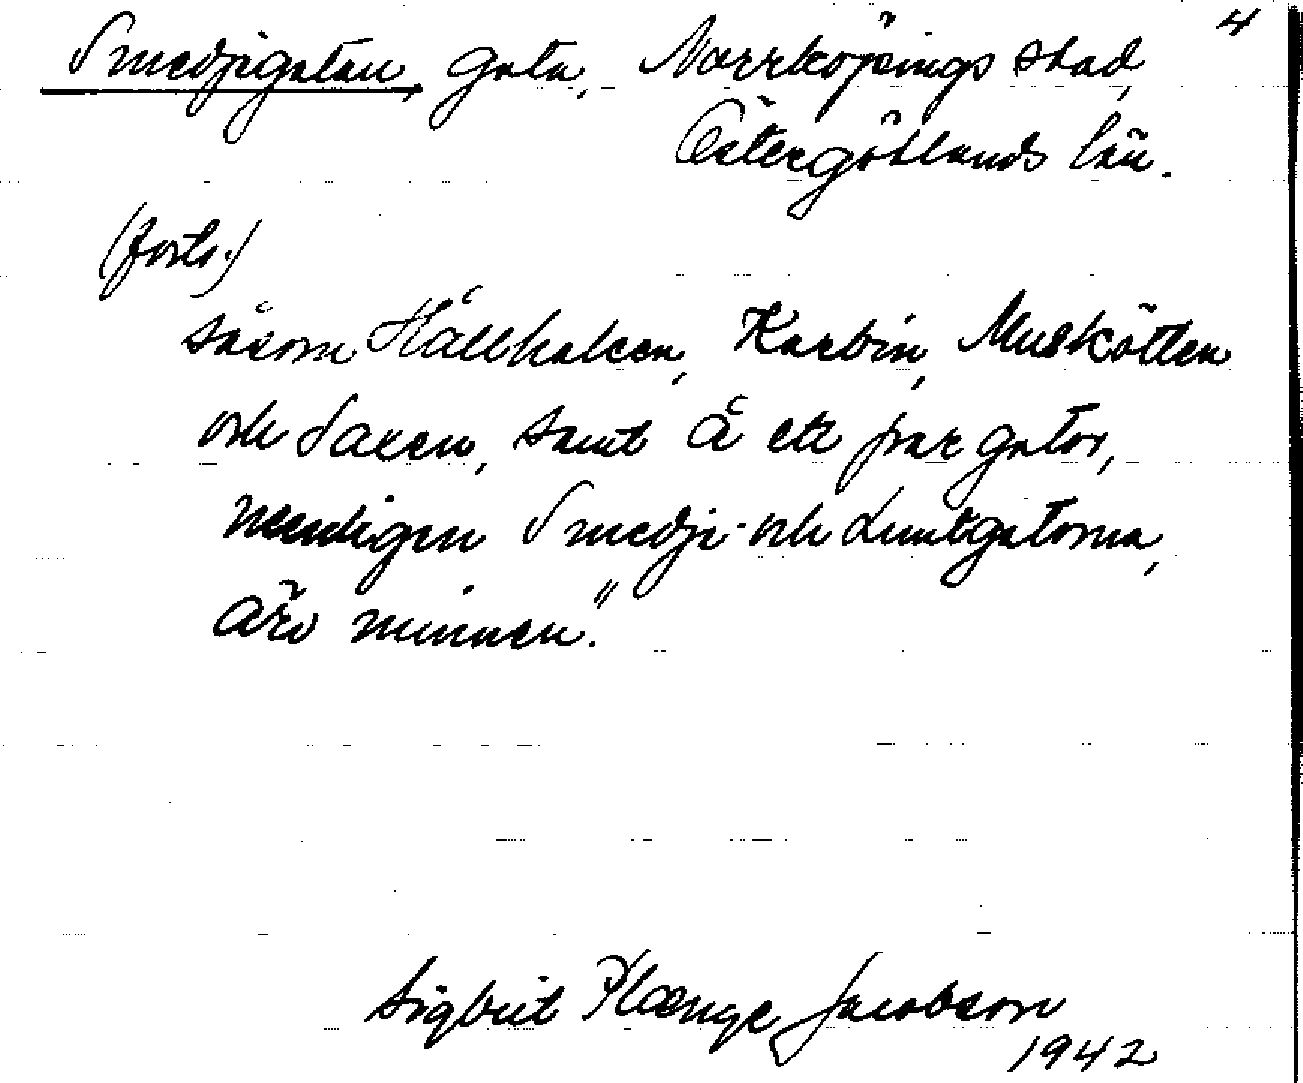 4
Smedjegatan, gata, Norrköpings stad,
Östergötlands län.
(forts.)
såsom Hällhaken, Karbin, Muskötten
och Saxen, samt å ett par gator,
nemligen Smedje- och Luntgatorna,
äro minnen."
Sigbrit Plænge Jacobson
1942